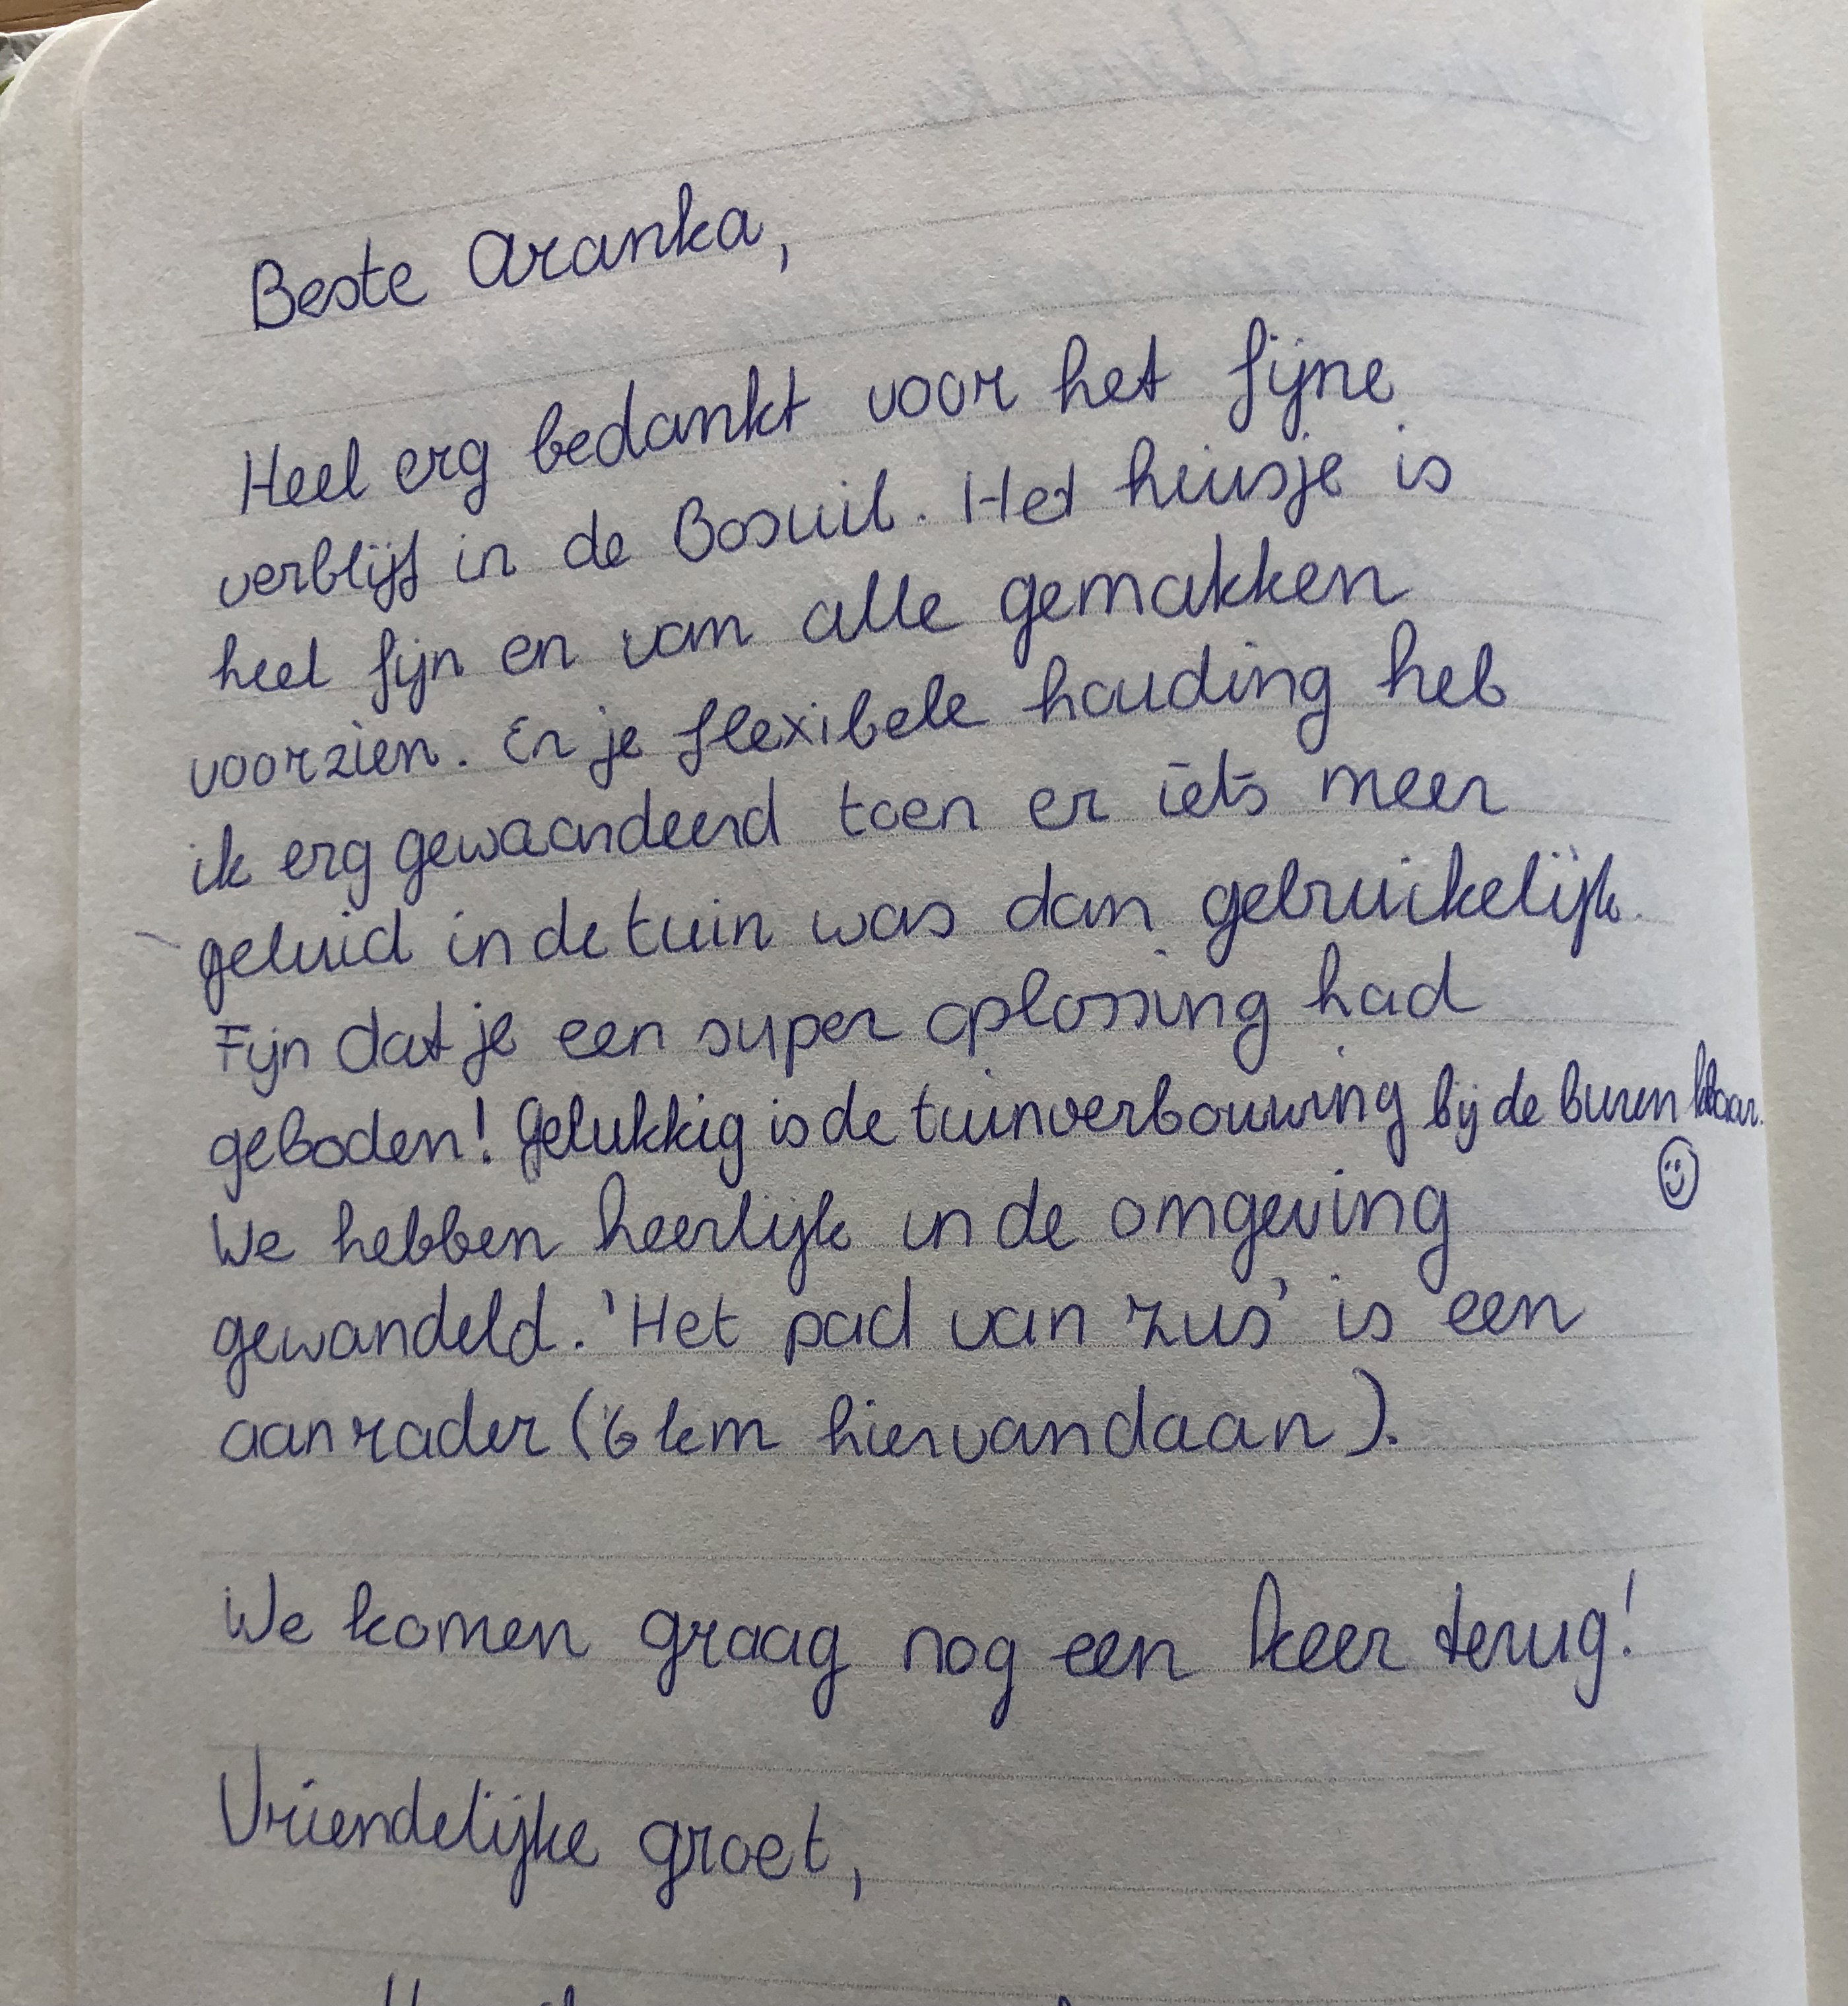 Beste Aranka,
Heel erg bedankt voor het fijne
verblijf in de Bosuil. Het huisje is
heel fijn en van alle gemakken
voorzien. En je flexibele houding heb
ik erg gewaardeerd toen er iets meer
geluid in de tuin was dan gebruikelijk.
Fijn dat je een super oplossing had
geboden! Gelukkig is de tuinverbouwing bij de buren klaar.
We hebben heerlijk in de omgeving
gewandeld. 'Het pad van zus' is een
aanrader (6 km hiervandaan).
We komen graag nog een keer terug!
Vriendelijke groet,